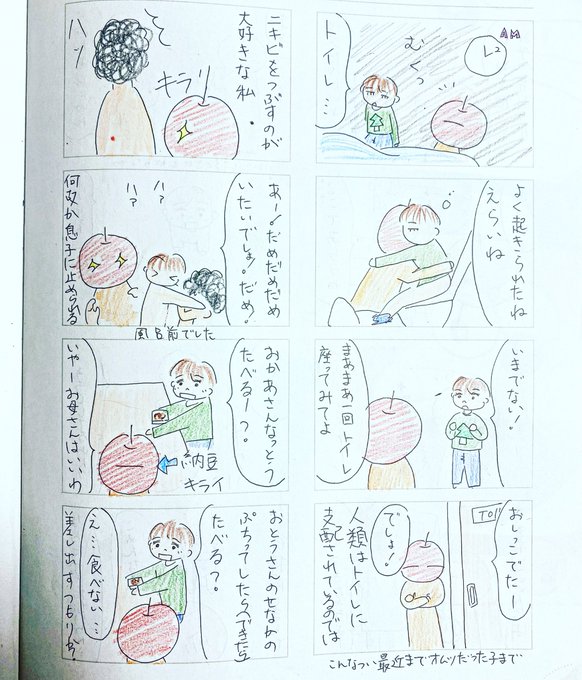 AM
2
むくっ
トイレ…
よく起きられたね
えらいね
いまでない!
まあまあ一回トイレ
座ってみてよ
おしっこでたー
でしょ!
人類はトイレに
支配されているのでは
こんなつい最近までオムツだった子まで
ニキビをつぶすのが
大好きな私
キラリ
ハッ
あー!だめだめだめ
いたいでしょ!だめ!
ハ?
ハ?
何故か息子に止められる
風呂前でした
おかあさんなっとう
たべるー?
納豆
キライ
いやーお母さんはいいわ
おとうさんのせなかの
ぷちってしたらへできたら
たべる?
え…食べない…
差し出すつもりか